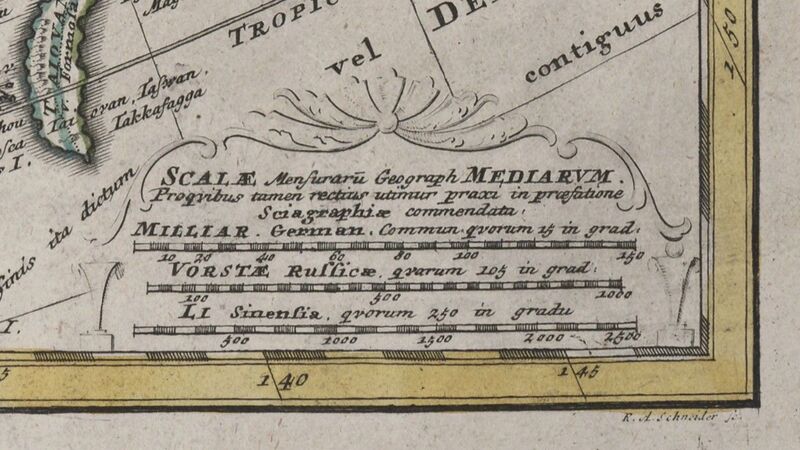 Mag
TROPIC
DE
vel
contiguus
TAIOVAN
v. Formosa
Tai
ovan, Taſwan,
Takkaſagga
hou
I.
ginis ita dictum
I.
1/50
SCALÆ Menſurarū Geograph MEDIARVM.
Proqvibus tamen rectius utimur praxi in præfatione
Sciagraphiæ commendata.
MILLIAR. German. Commun. qvorum 15 in grad:
10 20 60 80 100 150
VORSTÆ Ruſſicæ, qvarum 105 in grad:
100 500 1000
LI Sinenſia, qvorum 250 in gradu
500 1000 1500 2000 2500
5 140 145
R. A. Schneider ſc.